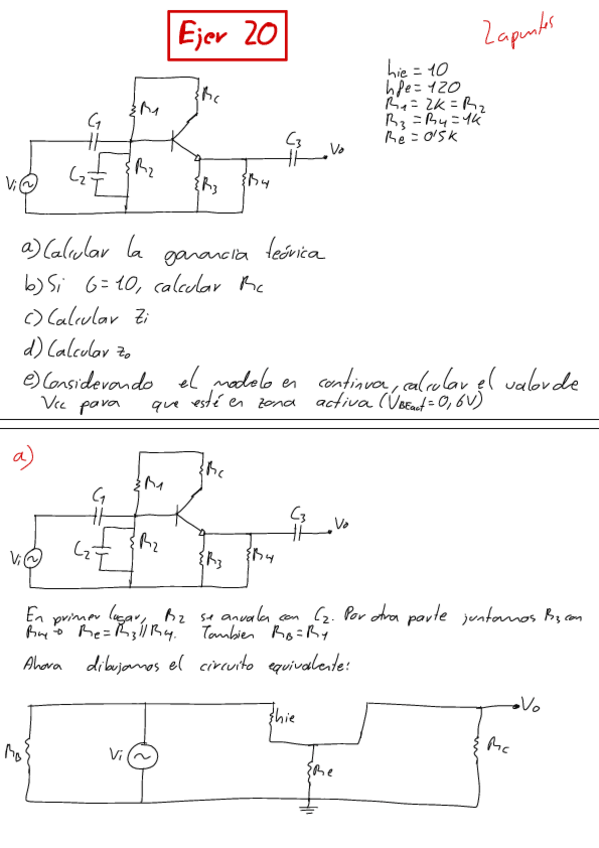 Ejer 20
2 apuntes
hie = 10
hfe = 120
R1 = 2k = R2
R3 = R4 = 1k
Re = 0'5k
R1
Rc
C1
C3
Vo
C2
R2
Vi
R3
R4
a) Calcular la ganancia teórica
b) Si G = 10, calcular Rc
c) Calcular Zi
d) Calcular Zo
e) Considerando el modelo en continua, calcular el valor de
Vcc para que esté en zona activa (VBEact = 0,6V)
a)
R1
Rc
C1
C3
Vo
C2
R2
Vi
R3
R4
En primer lugar, R2 se anula con C2. Por otra parte juntamos R3 con
R4 → Re = R3 // R4. Tambien RB = R1
Ahora dibujamos el circuito equivalente:
hie
Vo
RB
Vi
Re
Rc